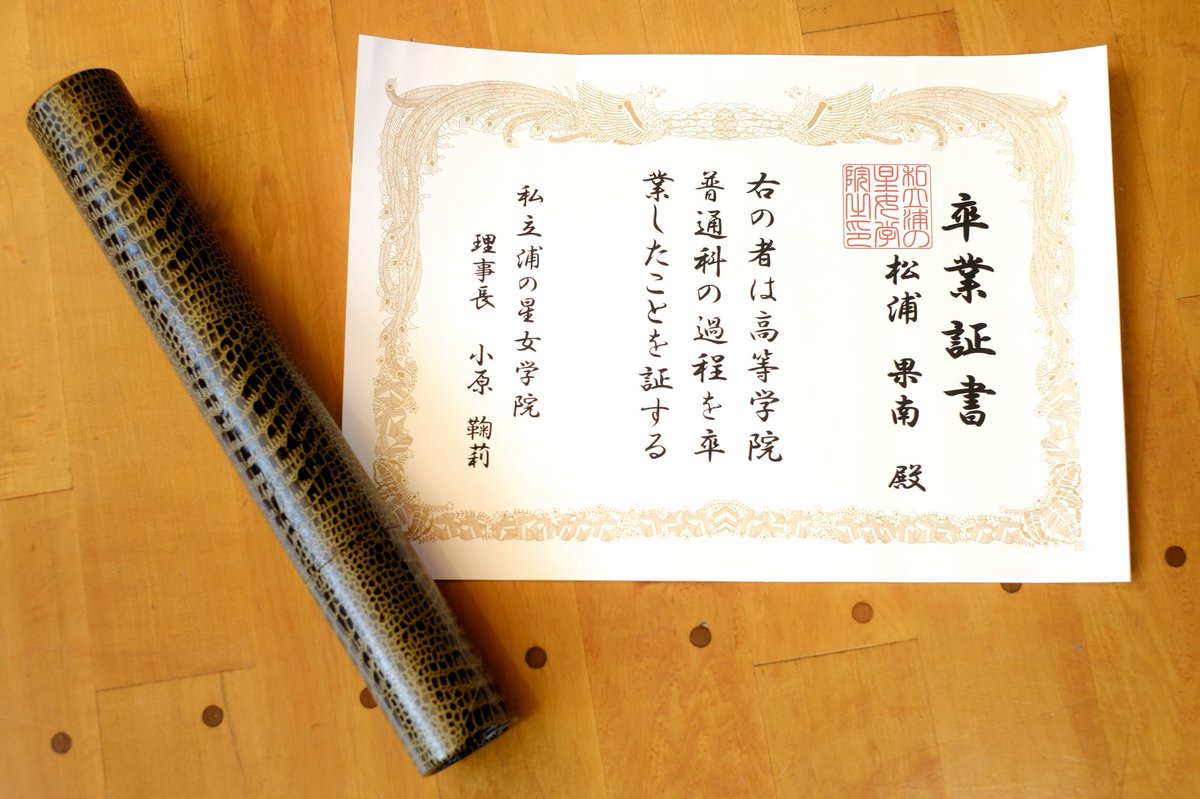 卒業証書
松浦 果南 殿
私立浦の
星女学
院之印
右の者は高等学院
普通科の過程を卒
業したことを証する
私立浦の星女学院
理事長 小原 鞠莉